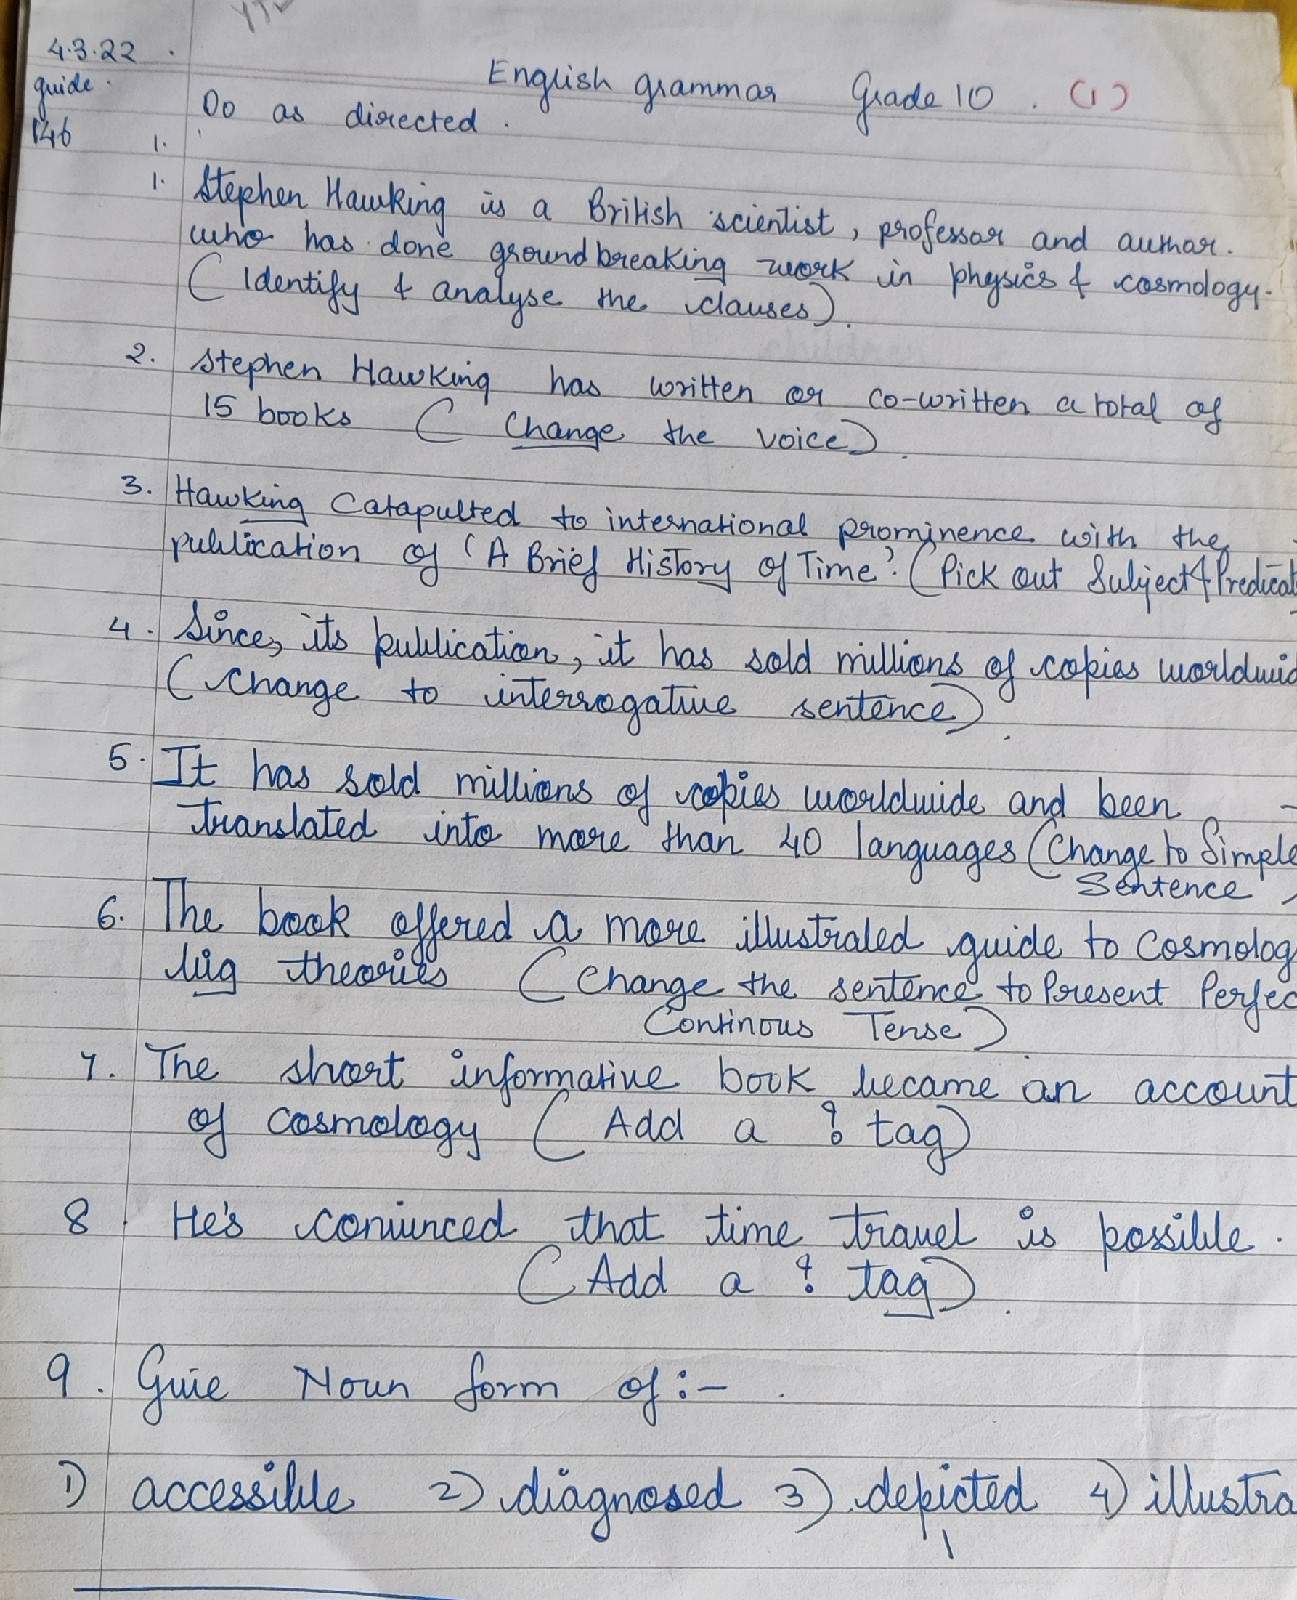 4.3.22
guide.
146
English grammar Grade 10. (1)
Do as directed.
1.
1. Stephen Hawking is a British scientist, professor and author.
who has done groundbreaking work in physics & cosmology.
(Identify & analyse the clauses).
2. Stephen Hawking has written or co-written a total of
15 books (Change the voice).
3. Hawking Catapulted to international prominence with the
publication of 'A Brief History of Time'. (Pick out Subject & Predicat
4. Since, its publication, it has sold millions of copies worldwid
(Change to interrogative sentence).
5. It has sold millions of copies worldwide and been
translated into more than 40 languages (Change to Simple
Sentence)
6. The book offered a more illustrated guide to Cosmolog
big theories (Change the sentence to Present Perfec
Continous Tense)
7. The short informative book became an account
of cosmology (Add a ? tag)
8. He's convinced that time travel is possible.
(Add a ? tag).
9. Give Noun form of :- .
1) accessible 2) diagnosed 3) depicted 4) illustra